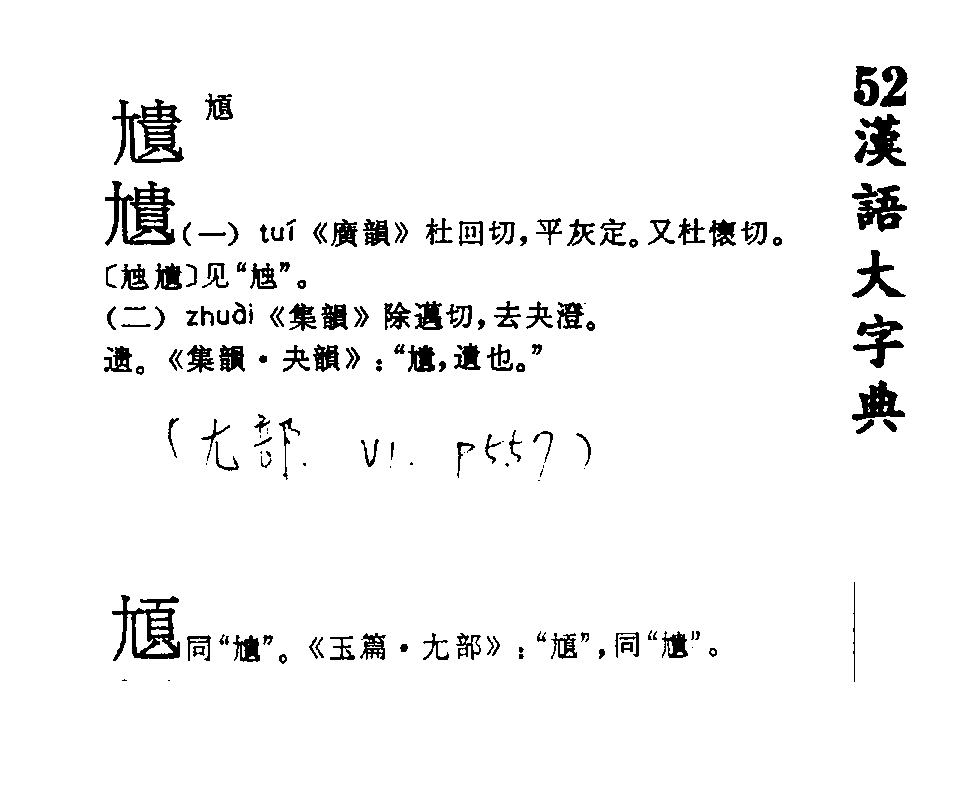 尵
尵(一) tuí《廣韻》杜回切,平灰定。又杜懷切。
〔尵〕见“”。
(二) zhuài《集韻》除邁切,去夬澄。
遗。《集韻·夬韻》:“尵,遺也。”
(尢部. V1. P557)
同“尵”。《玉篇·尢部》:“”,同“尵”。
52
漢語大字典